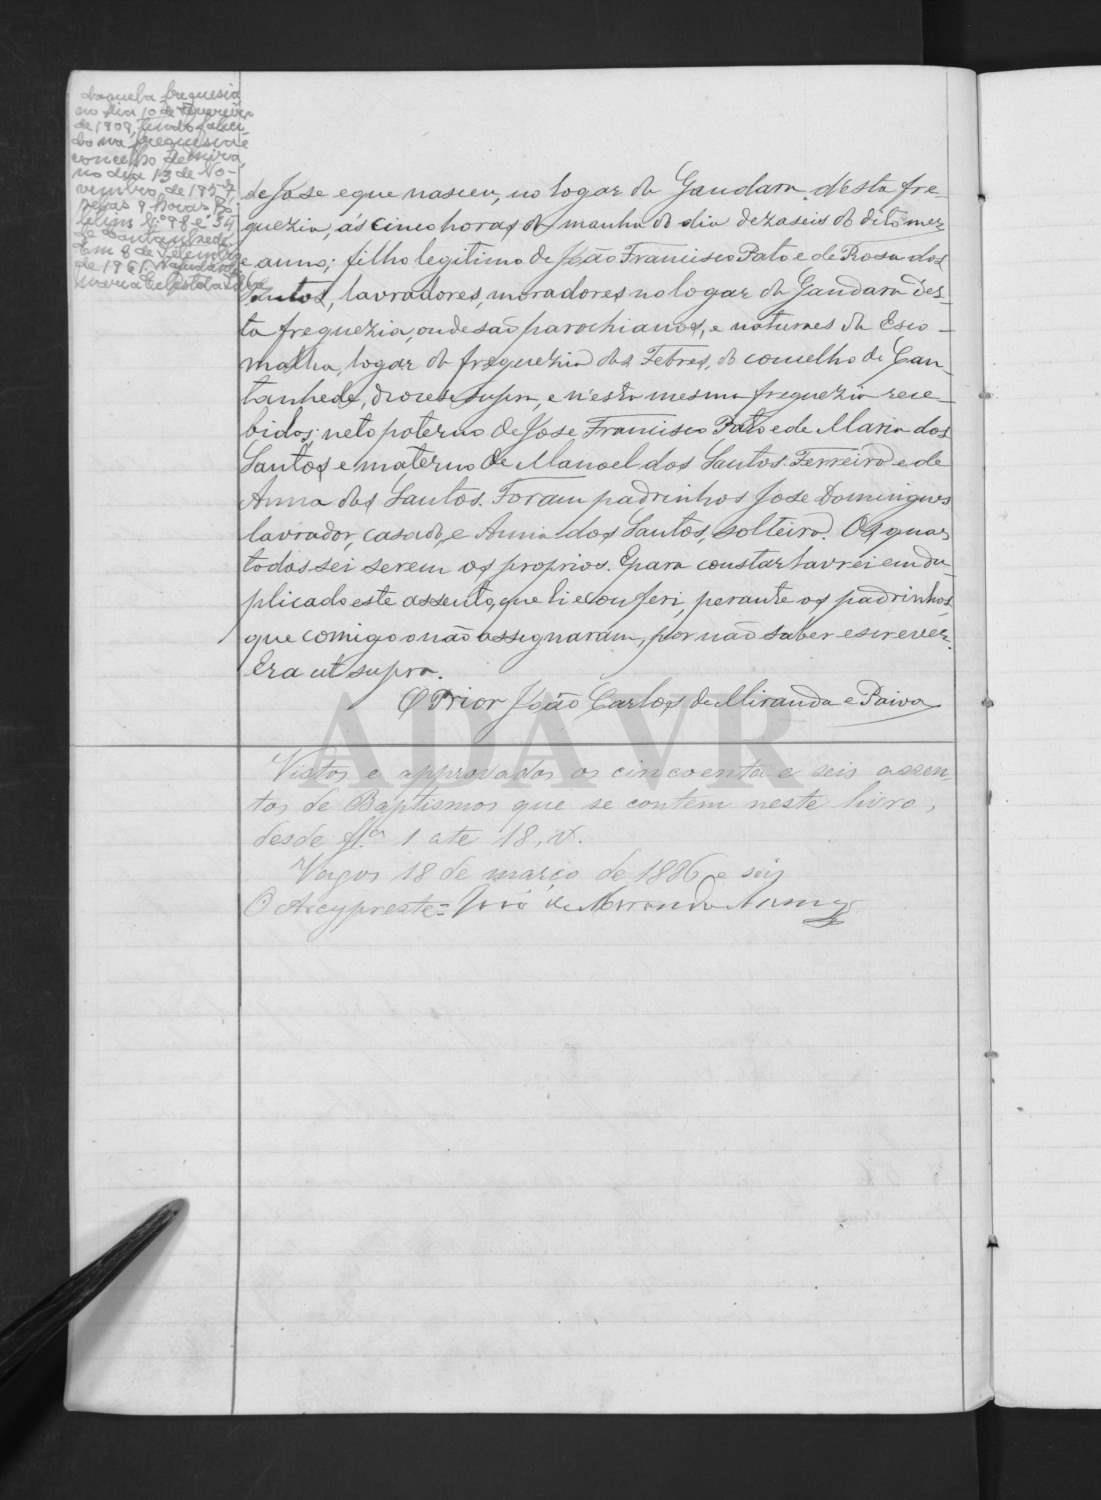 daquela freguesia
no dia 10 de Fevereiro
de 1909, tendo faleci-
do na freguesia e
concelho de Mira,
no dia 13 de No-
vembro, de 1957
pelas 9 horas Bo-
letins N.º 98 e
de Cantanhede.
Em 8 de Setembro
de 1961
Maria Celeste da Silva
de José e que nasceu, no logar da Gandara d'esta fre-
guezia, ás cinco horas da manha do dia dezaseis do dito mez
e anno; filho legitimo de João Francisco Pato e de Rosa dos
Santos, lavradores, moradores no logar da Gandara des-
ta freguezia, onde são parochianos, e naturaes da Esco-
malha, logar da freguezia das Febres, do concelho de Can-
tanhede, diocese supra, e n'esta mesma freguezia rece-
bidos; neto paterno de José Francisco Pato e de Maria dos
Santos e materno de Manoel dos Santos Ferreira e de
Anna dos Santos. Foram padrinhos José Domingues
lavrador, casado, e Anna dos Santos, solteira. Os quaes
todos sei serem os proprios. E para constar lavrei em du-
plicado este assento, que li e conferi, perante os padrinhos,
que comigo o não assignaram, por não saber escrever.
Era ut supra.
O Prior João Carlos de Miranda e Paiva
ADAVR
Vistos e approvados os cincoenta e seis assen-
tos de Baptismos que se contem neste livro,
desde fl.as 1 ate 18, v.
Vagos 18 de março de 1886 e seis
O Arcypreste = José de Miranda